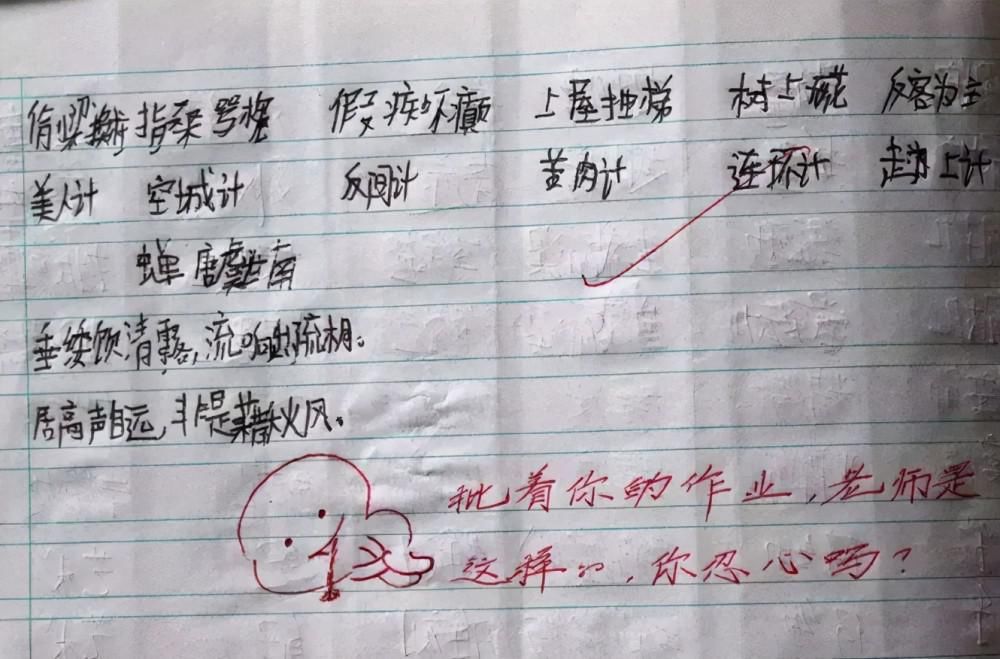 偷梁换柱 指桑骂槐 假疾坏癫 上屋抽梯 树上 反客为主
美人计 空城计 反间计 苦肉计 连环计 走为上计
蝉 唐虞世南
垂緌饮清露,流响出疏桐。
居高声自远,非是藉秋风。
批着你的作业,老师是
这样的,你忍心吗?